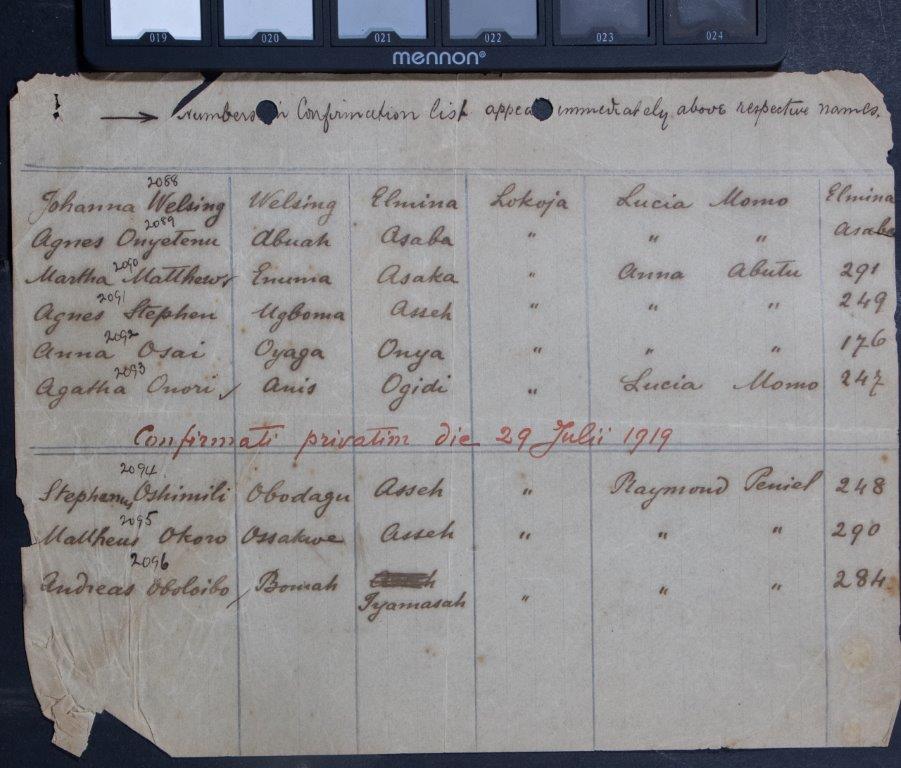 019 020 021 022 023 024
mennon®
→ Numbers in Confirmation list appear immediately above respective names.
2088
Johanna Welsing Welsing Elmina Lokoja Lucia Momo Elmina
2089
Agnes Onyetenu Abuah Asaba " " " Asaba
2090
Martha Matthews Enuma Asaka " Anna Abutu 291
2091
Agnes Stephen Ugboma Asseh " " " 249
2092
Anna Osai Oyaga Onya " " " 176
2093
Agatha Onori Anis Ogidi " Lucia Momo 247
Confirmati privatim die 29 Julii 1919
2094
Stephanus Oshimili Obodagu Asseh " Raymond Peniel 248
2095
Mattheus Okoro Ossakwe Asseh " " " 290
2096
Andreas Oboloibo Bomah " " " 284
Iyamasah